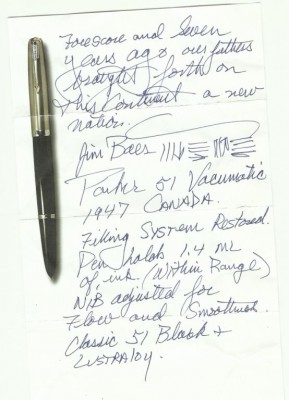 Forescore and Seven
years ago, our fathers
brought forth on
this Continent a new
nation.
Jim Baer
Parker 51 Vacumatic
1947 CANADA.
Filling System Restored.
Pen holds 1.4 ML
of ink. (Within Range)
NIB adjusted for
Flow and Smoothness.
Classic 51 Black +
LUSTRALOY.